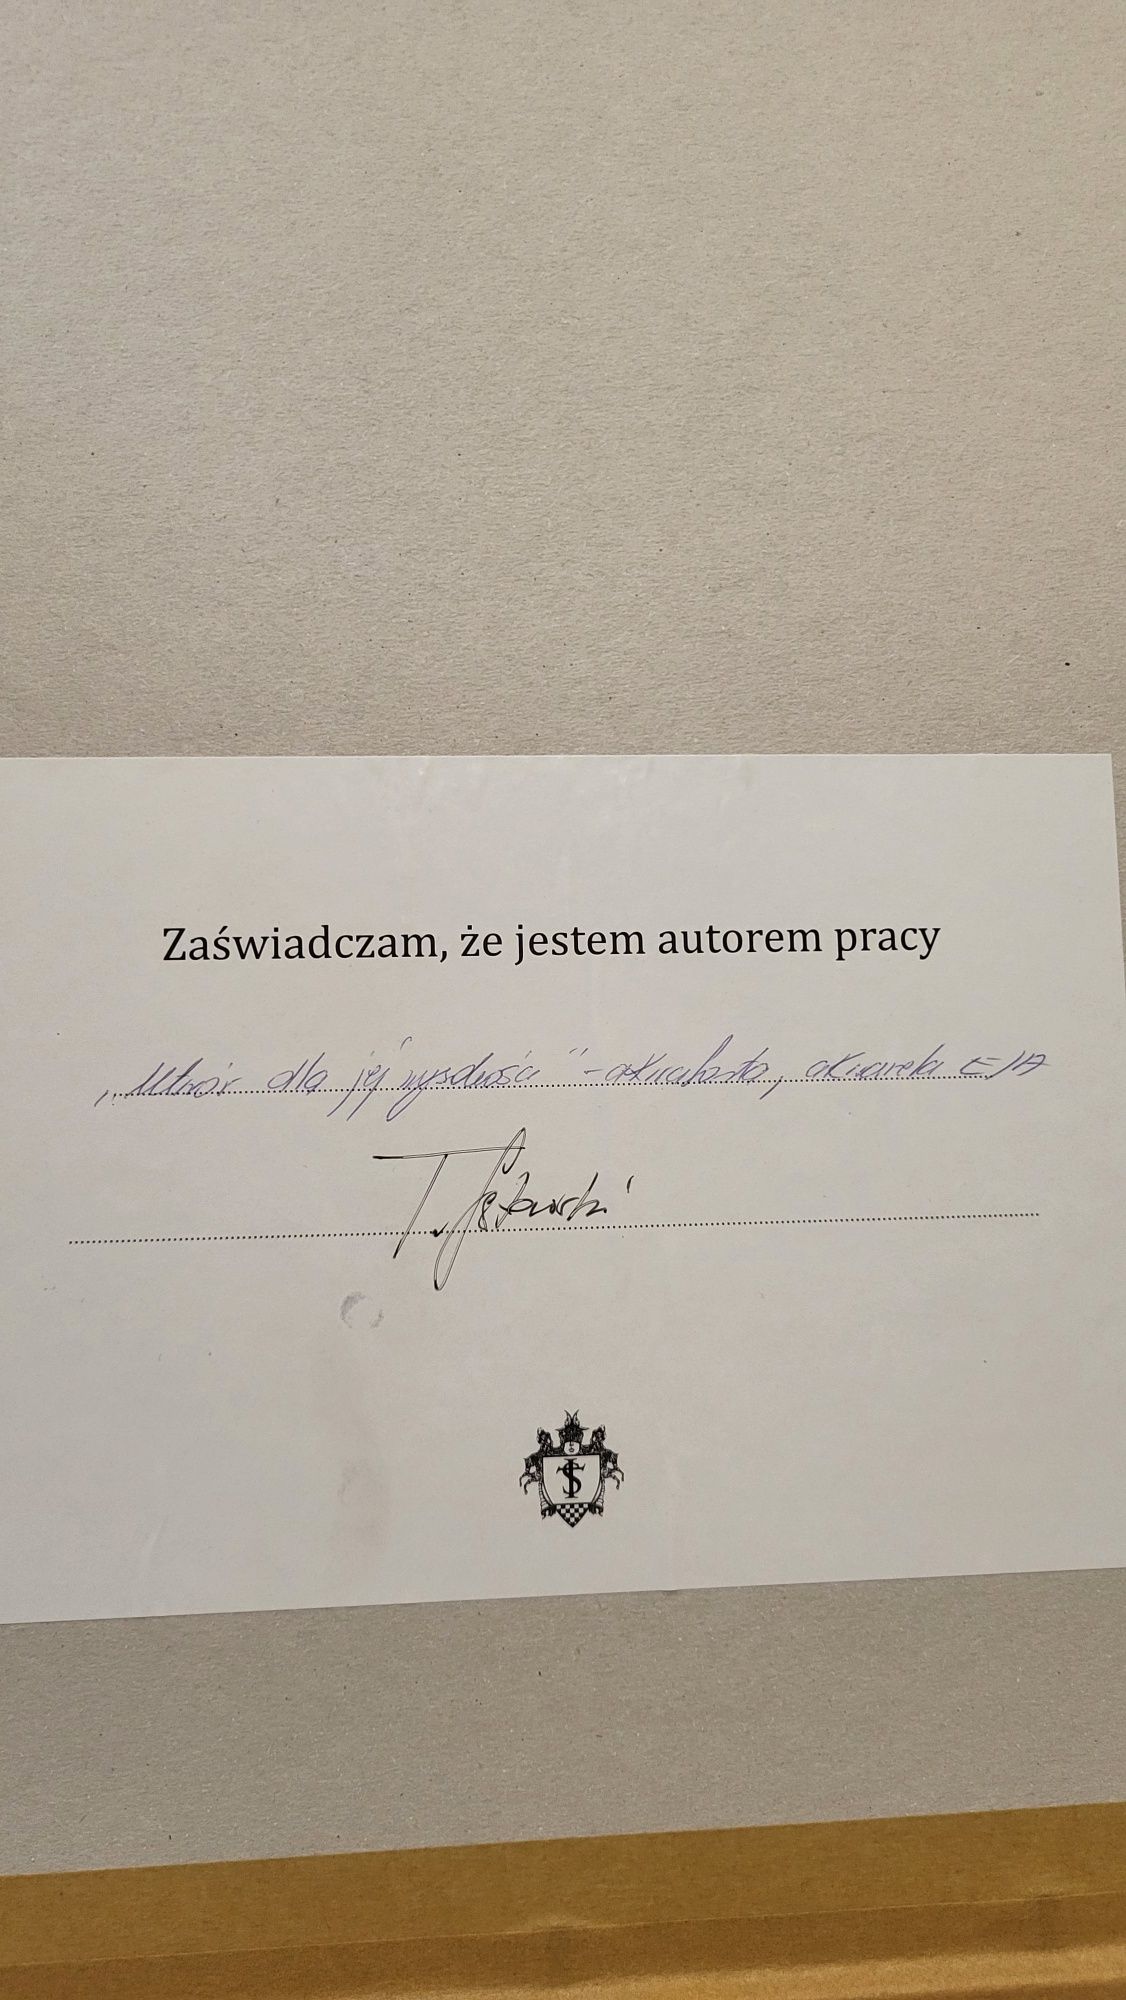 Zaświadczam, że jestem autorem pracy
„Utwór dla jej wysokości" - akwaforta, akwarela E/A
T. Sętowski